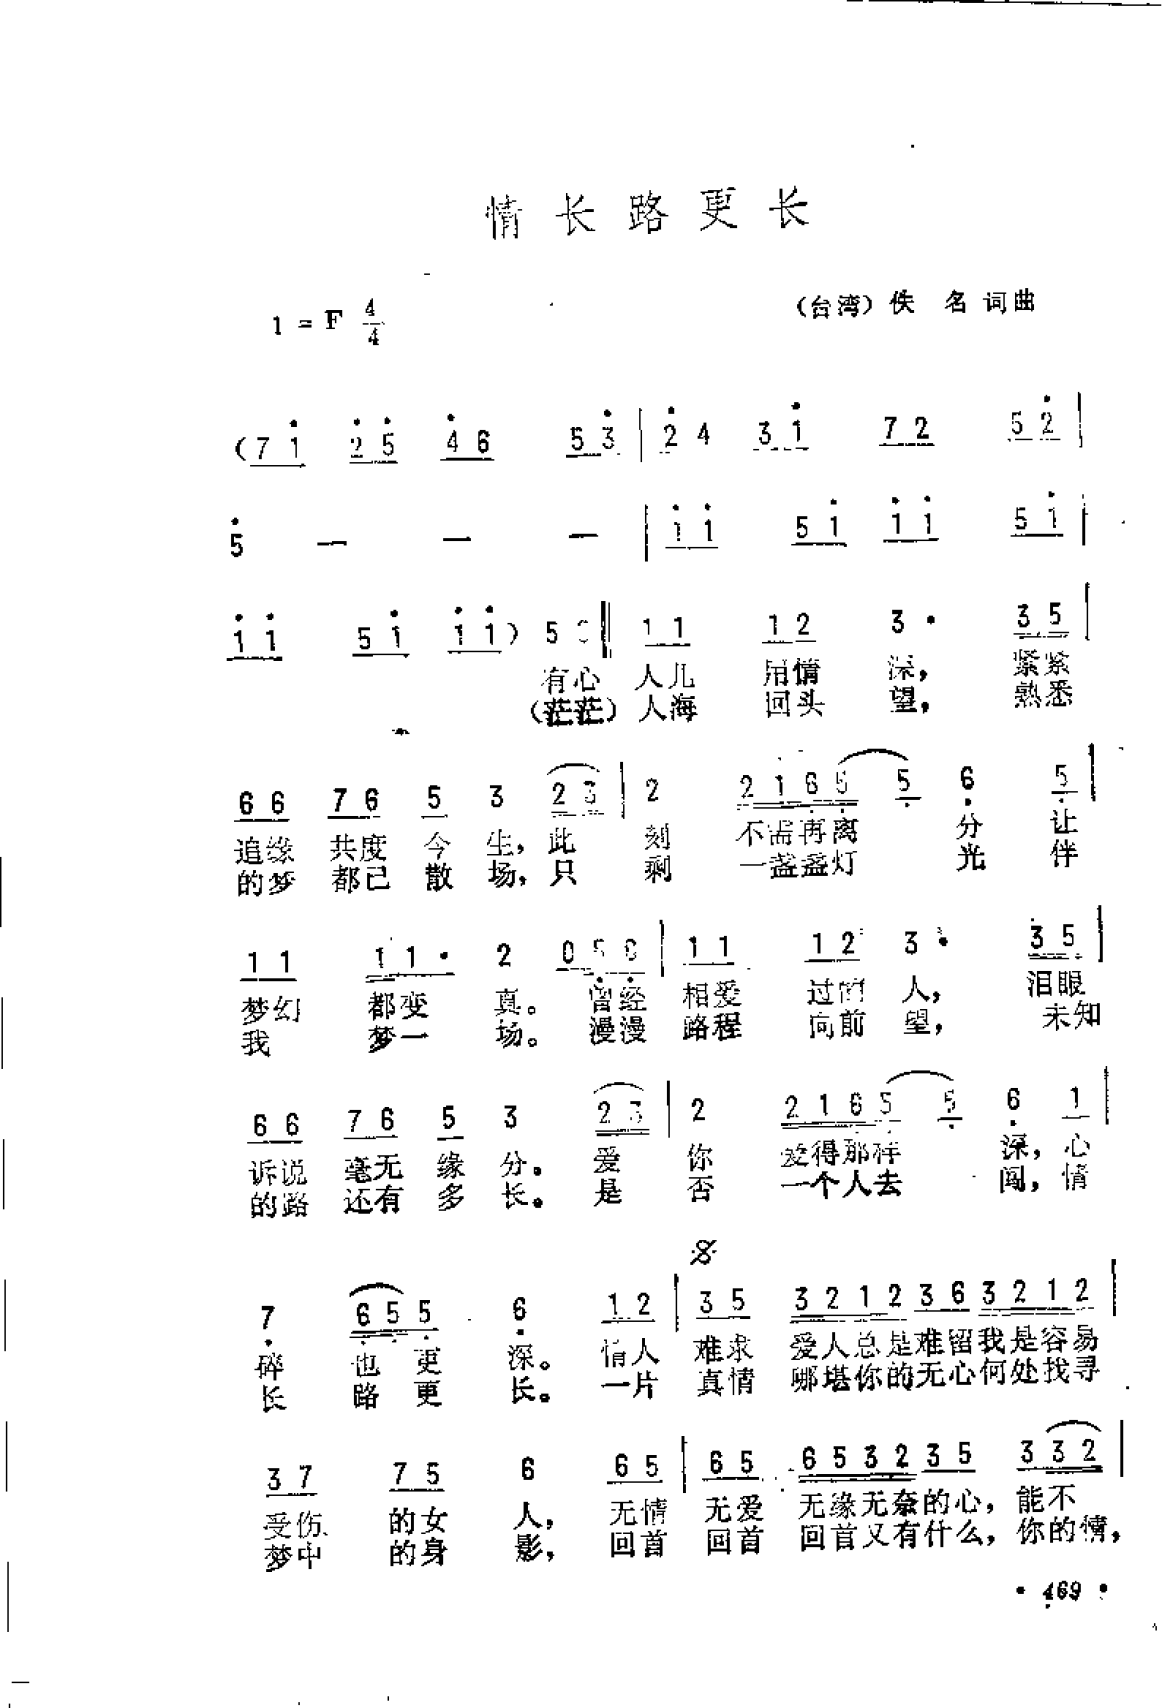 情长路更长
1 = F 4/4
(台湾) 佚 名 词曲
(7 1̇ 2̇ 5̇ 4̇ 6 5 3̇ | 2̇ 4 3 1̇ 7 2 5 2̇ |
5̇ — — — | 1̇ 1̇ 5 1̇ 1̇ 1̇ 5 1̇ |
1̇ 1̇ 5 1̇ 1̇ 1̇) 5 ‖ 1 1 1 2 3 · 3 5 |
有心 人儿 用情 深， 紧紧
(茫茫) 人海 回头 望， 熟悉
6 6 7 6 5 3 2 3 | 2 2 1 6̣ 5̣ 5̣ 6̣ 5̣ |
追缘 共度 今 生，此 刻 不需再离 分 让
的梦 都已 散 场，只 剩 一盏盏灯 光 伴
1 1 1 1 · 2 0 5̣ 6̣ | 1 1 1 2 3 · 3 5 |
梦幻 都变 真。 曾经 相爱 过的 人， 泪眼
我 梦一 场。 漫漫 路程 向前 望， 未知
6 6 7 6 5 3 2 3 | 2 2 1 6̣ 5̣ 5̣ 6̣ 1 |
诉说 毫无 缘 分。 爱 你 爱得那样 深，心
的路 还有 多 长。 是 否 一个人去 闯，情
7̣ 6̣ 5̣ 5̣ 6̣ 1 2 | 3 5 3 2 1 2 3 6 3 2 1 2 |
碎 也 更 深。 情人 难求 爱人总是难留我是容易
长 路 更 长。 一片 真情 哪堪你的无心何处找寻
3 7 7 5 6 6 5 | 6 5 6 5 3 2 3 5 3 3 2 |
受伤 的女 人， 无情 无爱 无缘无奈的心，能不
梦中 的身 影， 回首 回首 回首又有什么，你的情，
· 469 ·